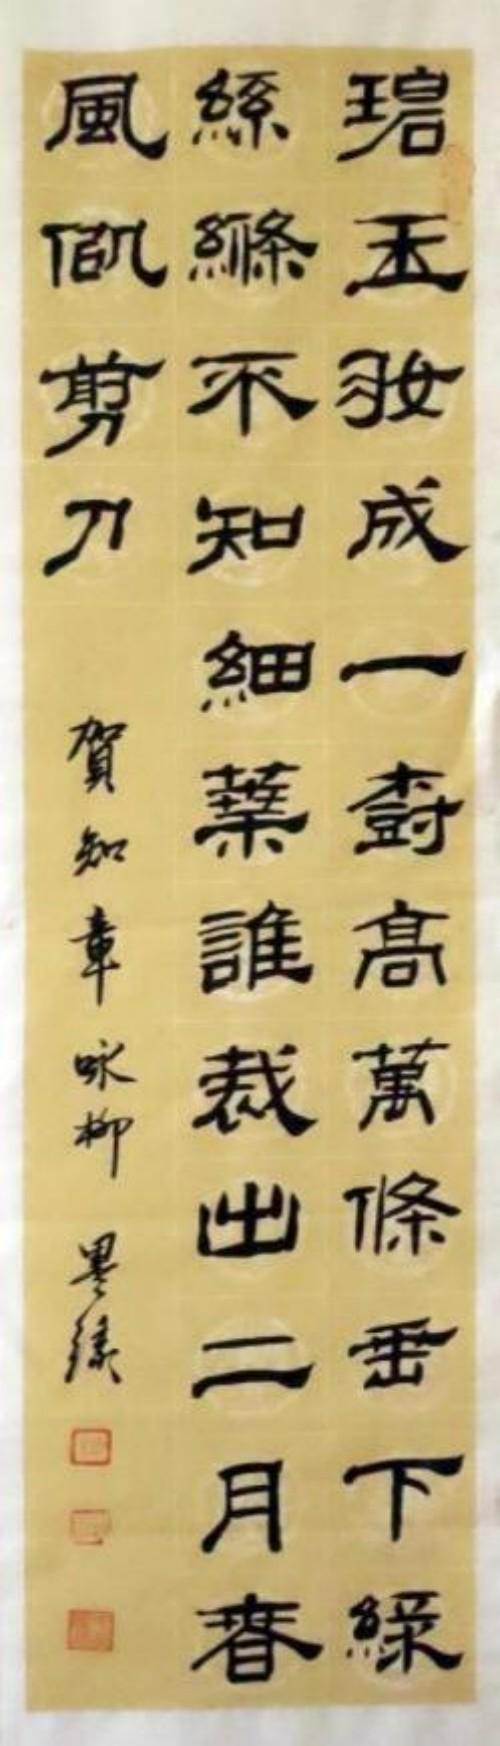 碧玉妝成一樹高萬條垂下綠
絲絛不知細葉誰裁出二月春
風佀剪刀
賀知章咏柳 墨緣